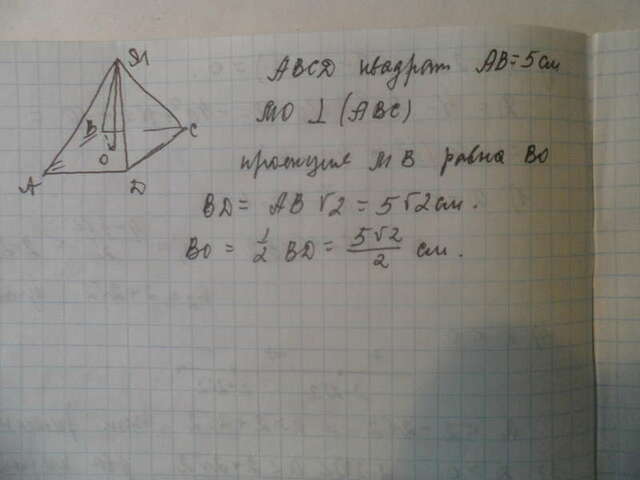 M
B
C
O
A
D
ABCD квадрат AB = 5 см
MO ⊥ (ABC)
проекция MB равна BO
BD = AB √2 = 5√2 см.
BO = 1/2 BD = 5√2/2 см.